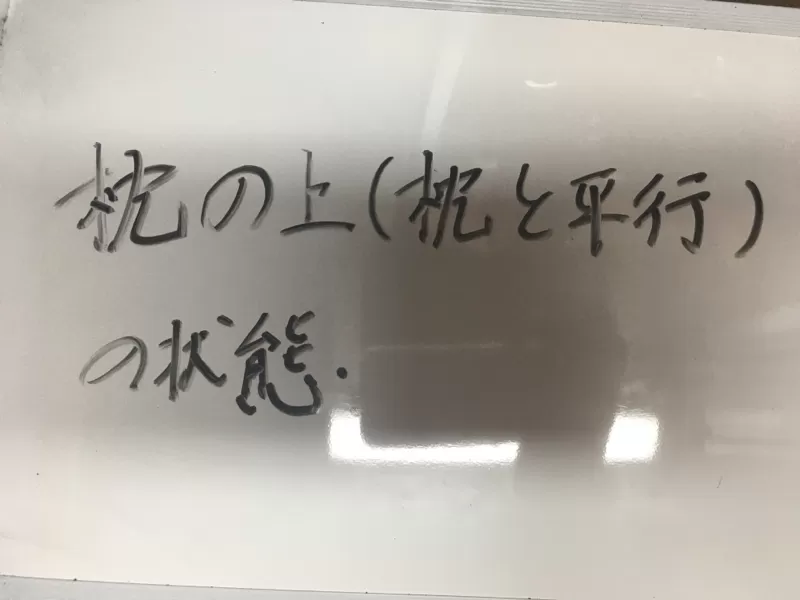 枕の上(枕と平行)
の状態.